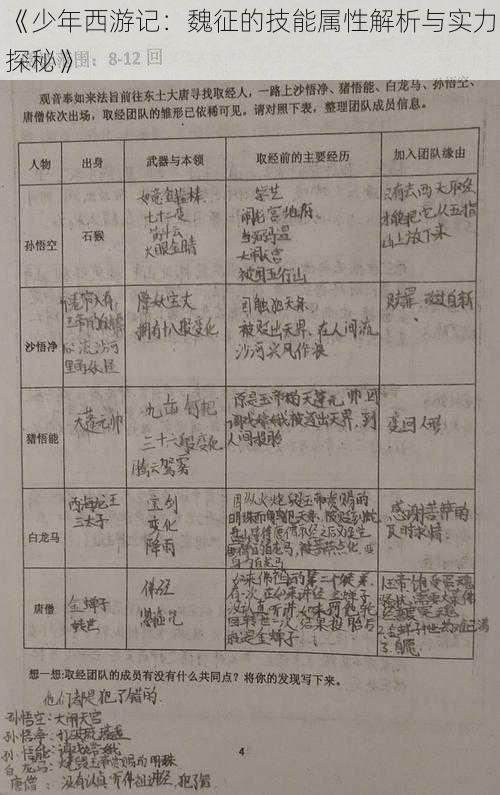 《少年西游记：魏征的技能属性解析与实力
探秘》
围：8-12 回
观音奉如来法旨前往东土大唐寻找取经人，一路上沙悟净、猪悟能、白龙马、孙悟空、
唐僧依次出场，取经团队的雏形已依稀可见。请对照下表，整理团队成员信息。
人物 出身 武器与本领 取经前的主要经历 加入团队缘由
孙悟空
石猴
如意金箍棒
七十二变
筋斗云
火眼金睛
学艺
闹龙宫地府
当弼马温
大闹天宫
被困五行山
只有去西天取经
才能把它从五指
山上放下来
沙悟净
降妖宝丈
拥有十八般变化
因触犯天条
被贬出天界，在人间流
沙河兴风作浪
赎罪，改过自新
猪悟能
天蓬元帅
九齿钉耙
三十六般变化
腾云驾雾
原是玉帝的天蓬元帅因
调戏嫦娥被逐出天界，到
人间投胎
变回人形
白龙马
西海龙王
三太子
宝剑
变化
降雨
因纵火烧毁玉帝赏赐的
明珠而触犯天条
感谢菩萨的
及时求情
唐僧
金蝉子
转世
佛经
紧箍咒
如来佛祖的第二个徒弟
想一想:取经团队的成员有没有什么共同点？将你的发现写下来。
他们都是犯了错的.
孙悟空：大闹天宫
白龙马：烧毁玉帝赏赐的明珠
唐僧：没有认真听佛祖讲经
4